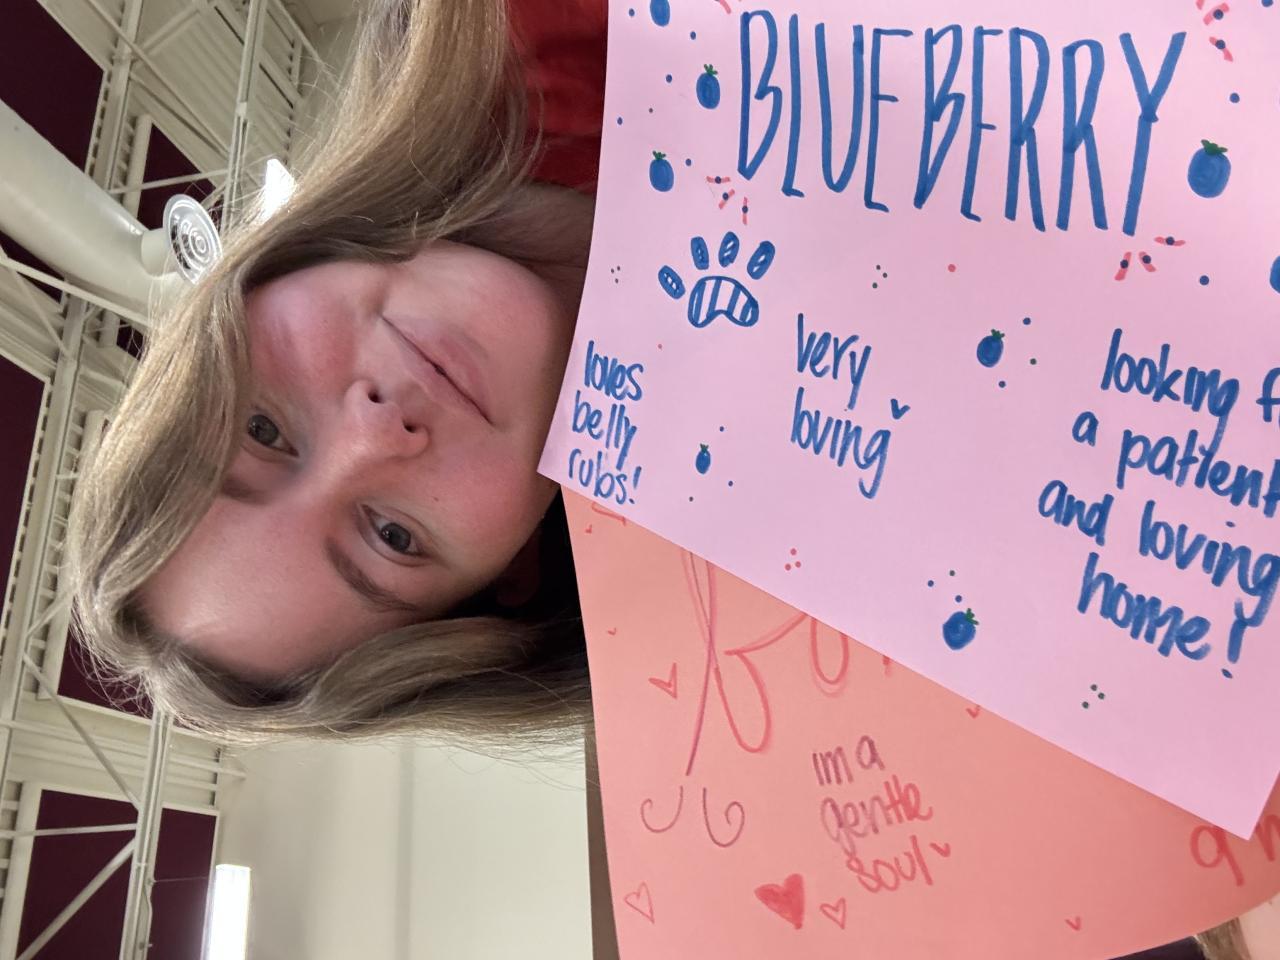 BLUEBERRY
loves
belly
rubs!
very
loving
looking f
a patient
and loving
home!
im a
gentle
soul